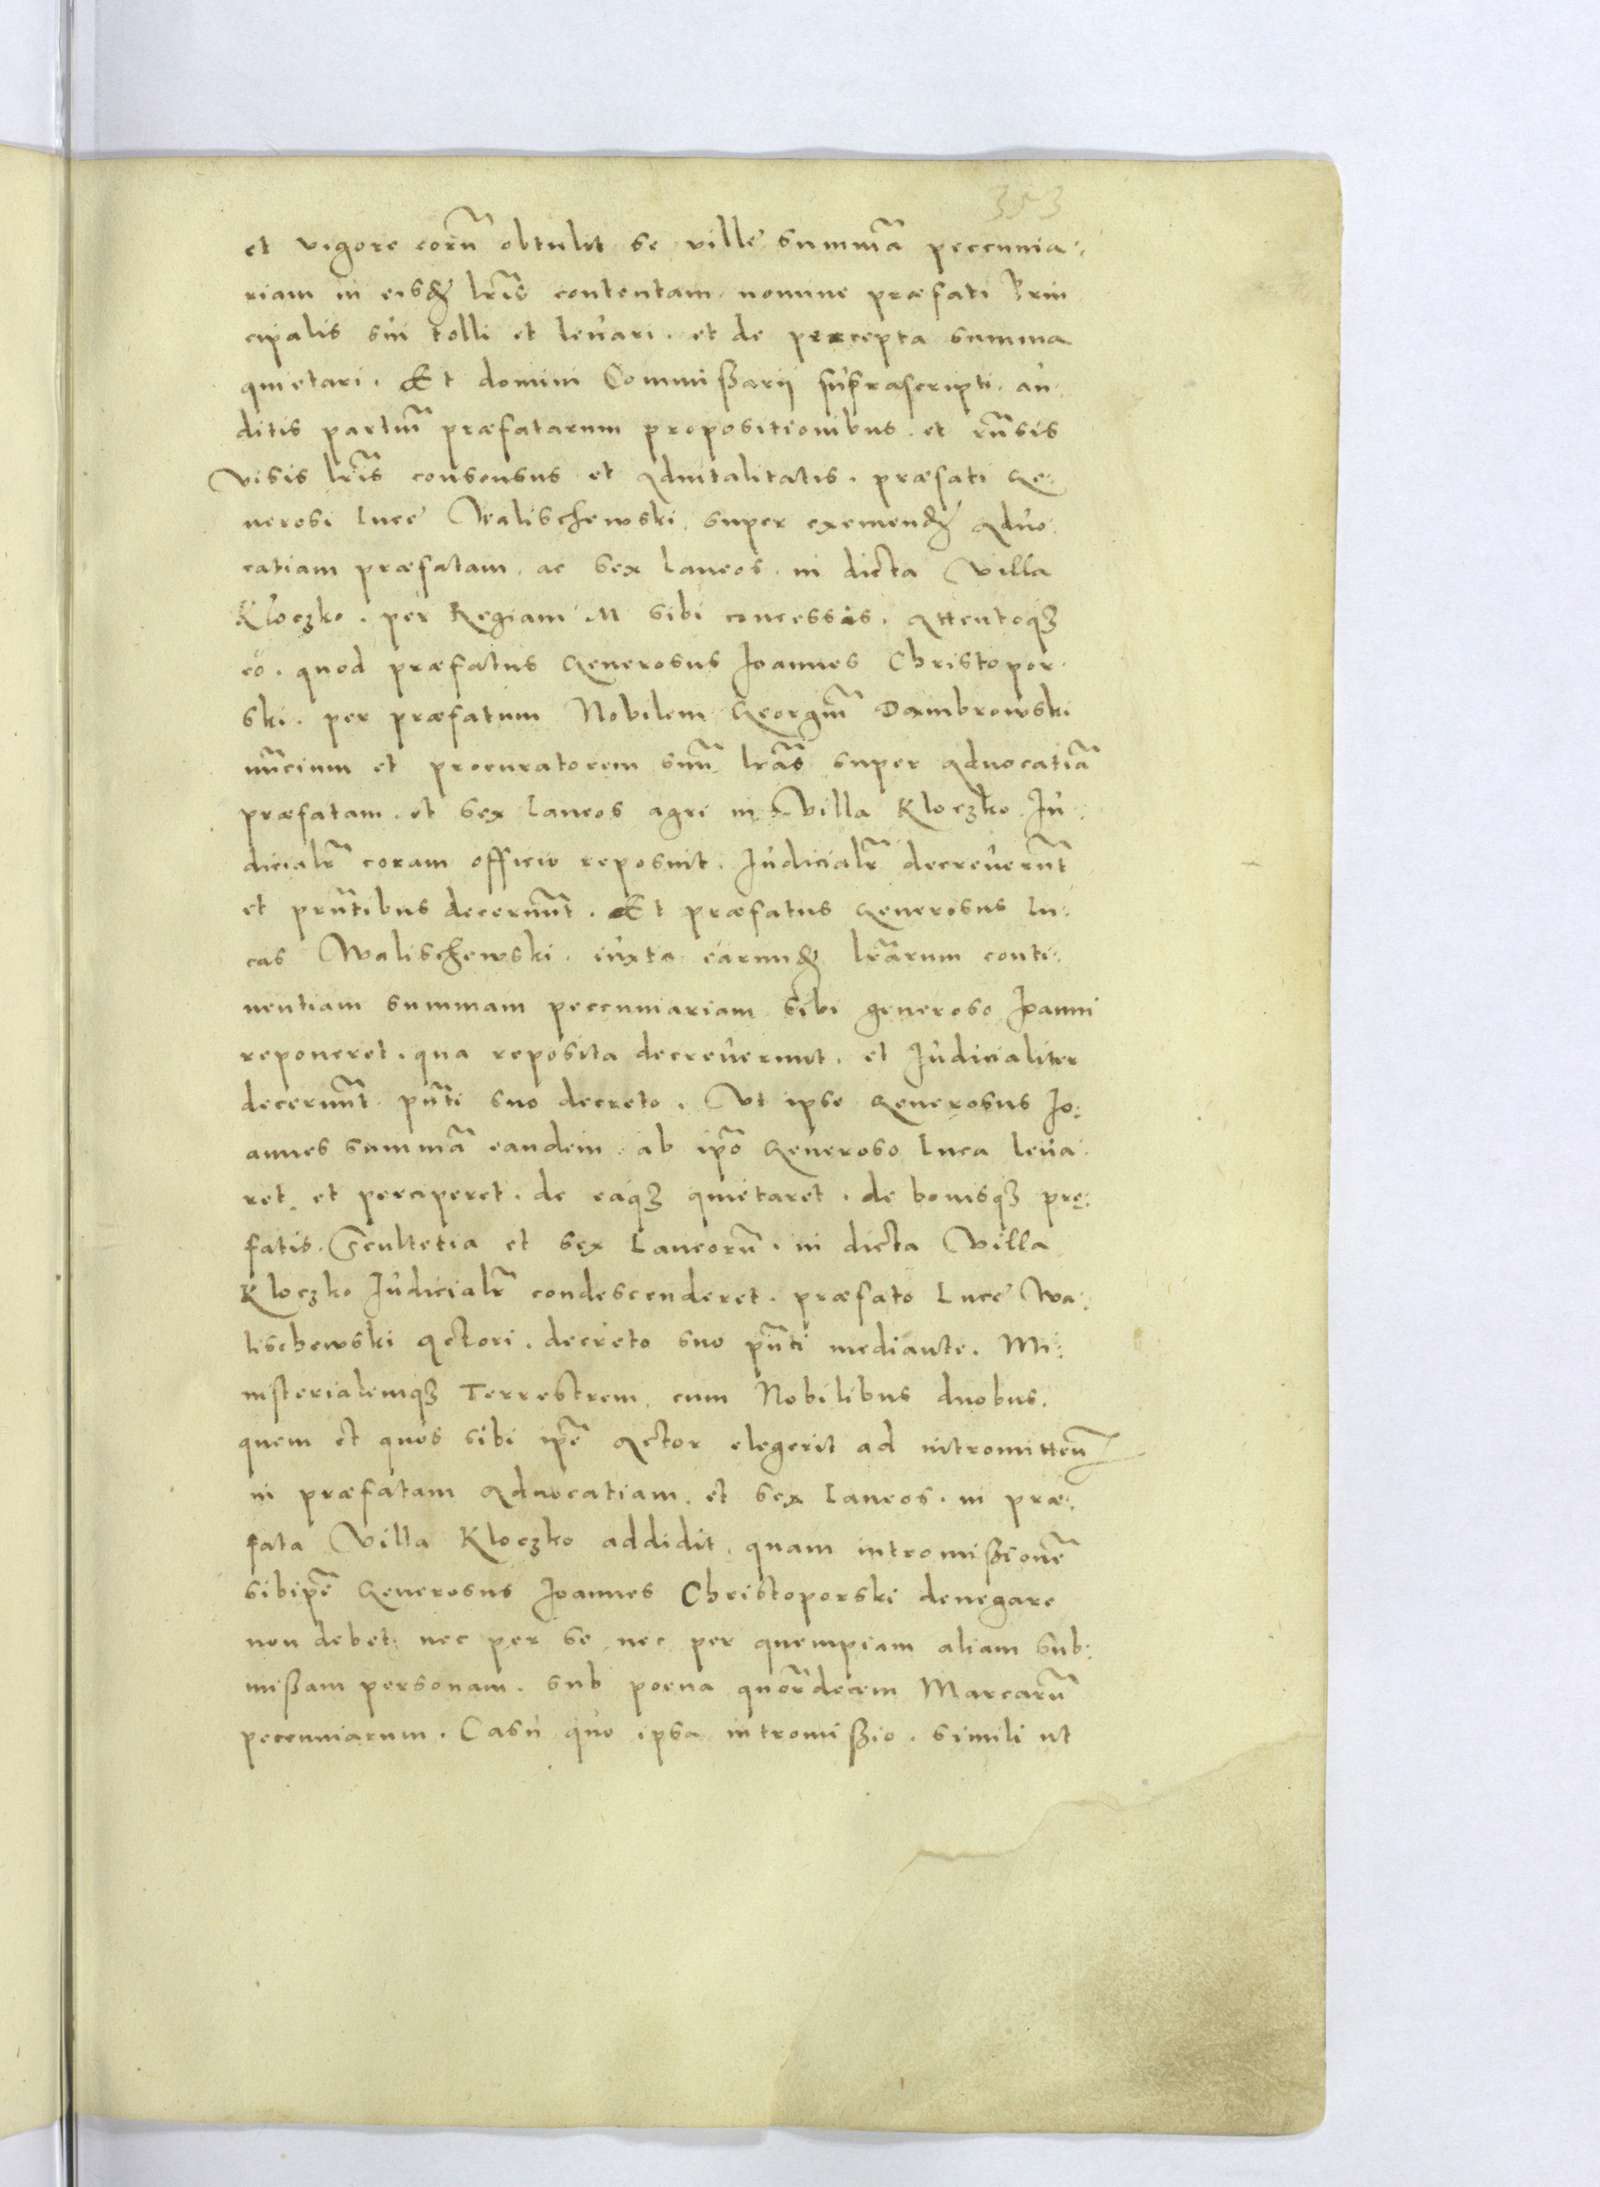 353
et vigore eorũ obtulit se villẽ summã peccunia:
riam in eisdẽ lr̃is contentam nomine præfati Prin
cipalis sui tolli et levari. et de percepta summa
quietari. Et domini Commißarij suprascripti. au:
ditis partiũ præfatarum propositionibus. et rũsis
Visis lr̃is consensus et Advitalitatis. præfati Ge:
nerosi Luce Walischewski super exemendã Advo:
catiam præfatam. ac sex laneos. in dicta Villa
Kloczko. per Regiam M sibi concessis. Attentoq3
eo. quod præfatus Generosus Joannes Christopor:
ski. per præfatum Nobilem Georgiũ Dambrowski
nũcium et procuratorem suũ lr̃as super Advocatiã
præfatam. et sex laneos agri in Villa Kloczko. Ju:
dicialr̃ coram officio reposuit. Judicialr̃ decreverũt
et prñtibus decernũt. Et præfatus Generosus Lu:
cas Walischewski. iuxta earundẽ lr̃arum conti:
nentiam summam peccuniariam sibi generoso Joanni
reponeret. qua reposita decreverunt. et Judicialiter
decernũt pñti suo decreto. Vt ipse Generosus Jo:
annes summã eandem. ab ip̃o Generoso Luca leva:
ret et perciperet. de eaq3 quietaret. de bonisq3 prę:
fatis. Scultetia et sex Laneorũ. in dicta Villa
Kloczko Judicialr̃ condescenderet. præfato Luce Wa:
lischewski Actori. decreto suo pñti mediante. Mi:
nisterialemq3 Terrestrem cum Nobilibus duobus.
quem et quos sibi ip̃e Actor elegerit ad intromitten̄
in præfatam Advocatiam. et sex Laneos. in præ:
fata Villa Kloczko addidit. quam intromißionẽ
sibiip̃e Generosus Joannes Christoporski denegare
non debet nec per se nec per quempiam aliam sub:
mißam personam. sub poena quor̃decem Marcarũ
peccuniarum. Casu quo ipsa intromißio. simili ut